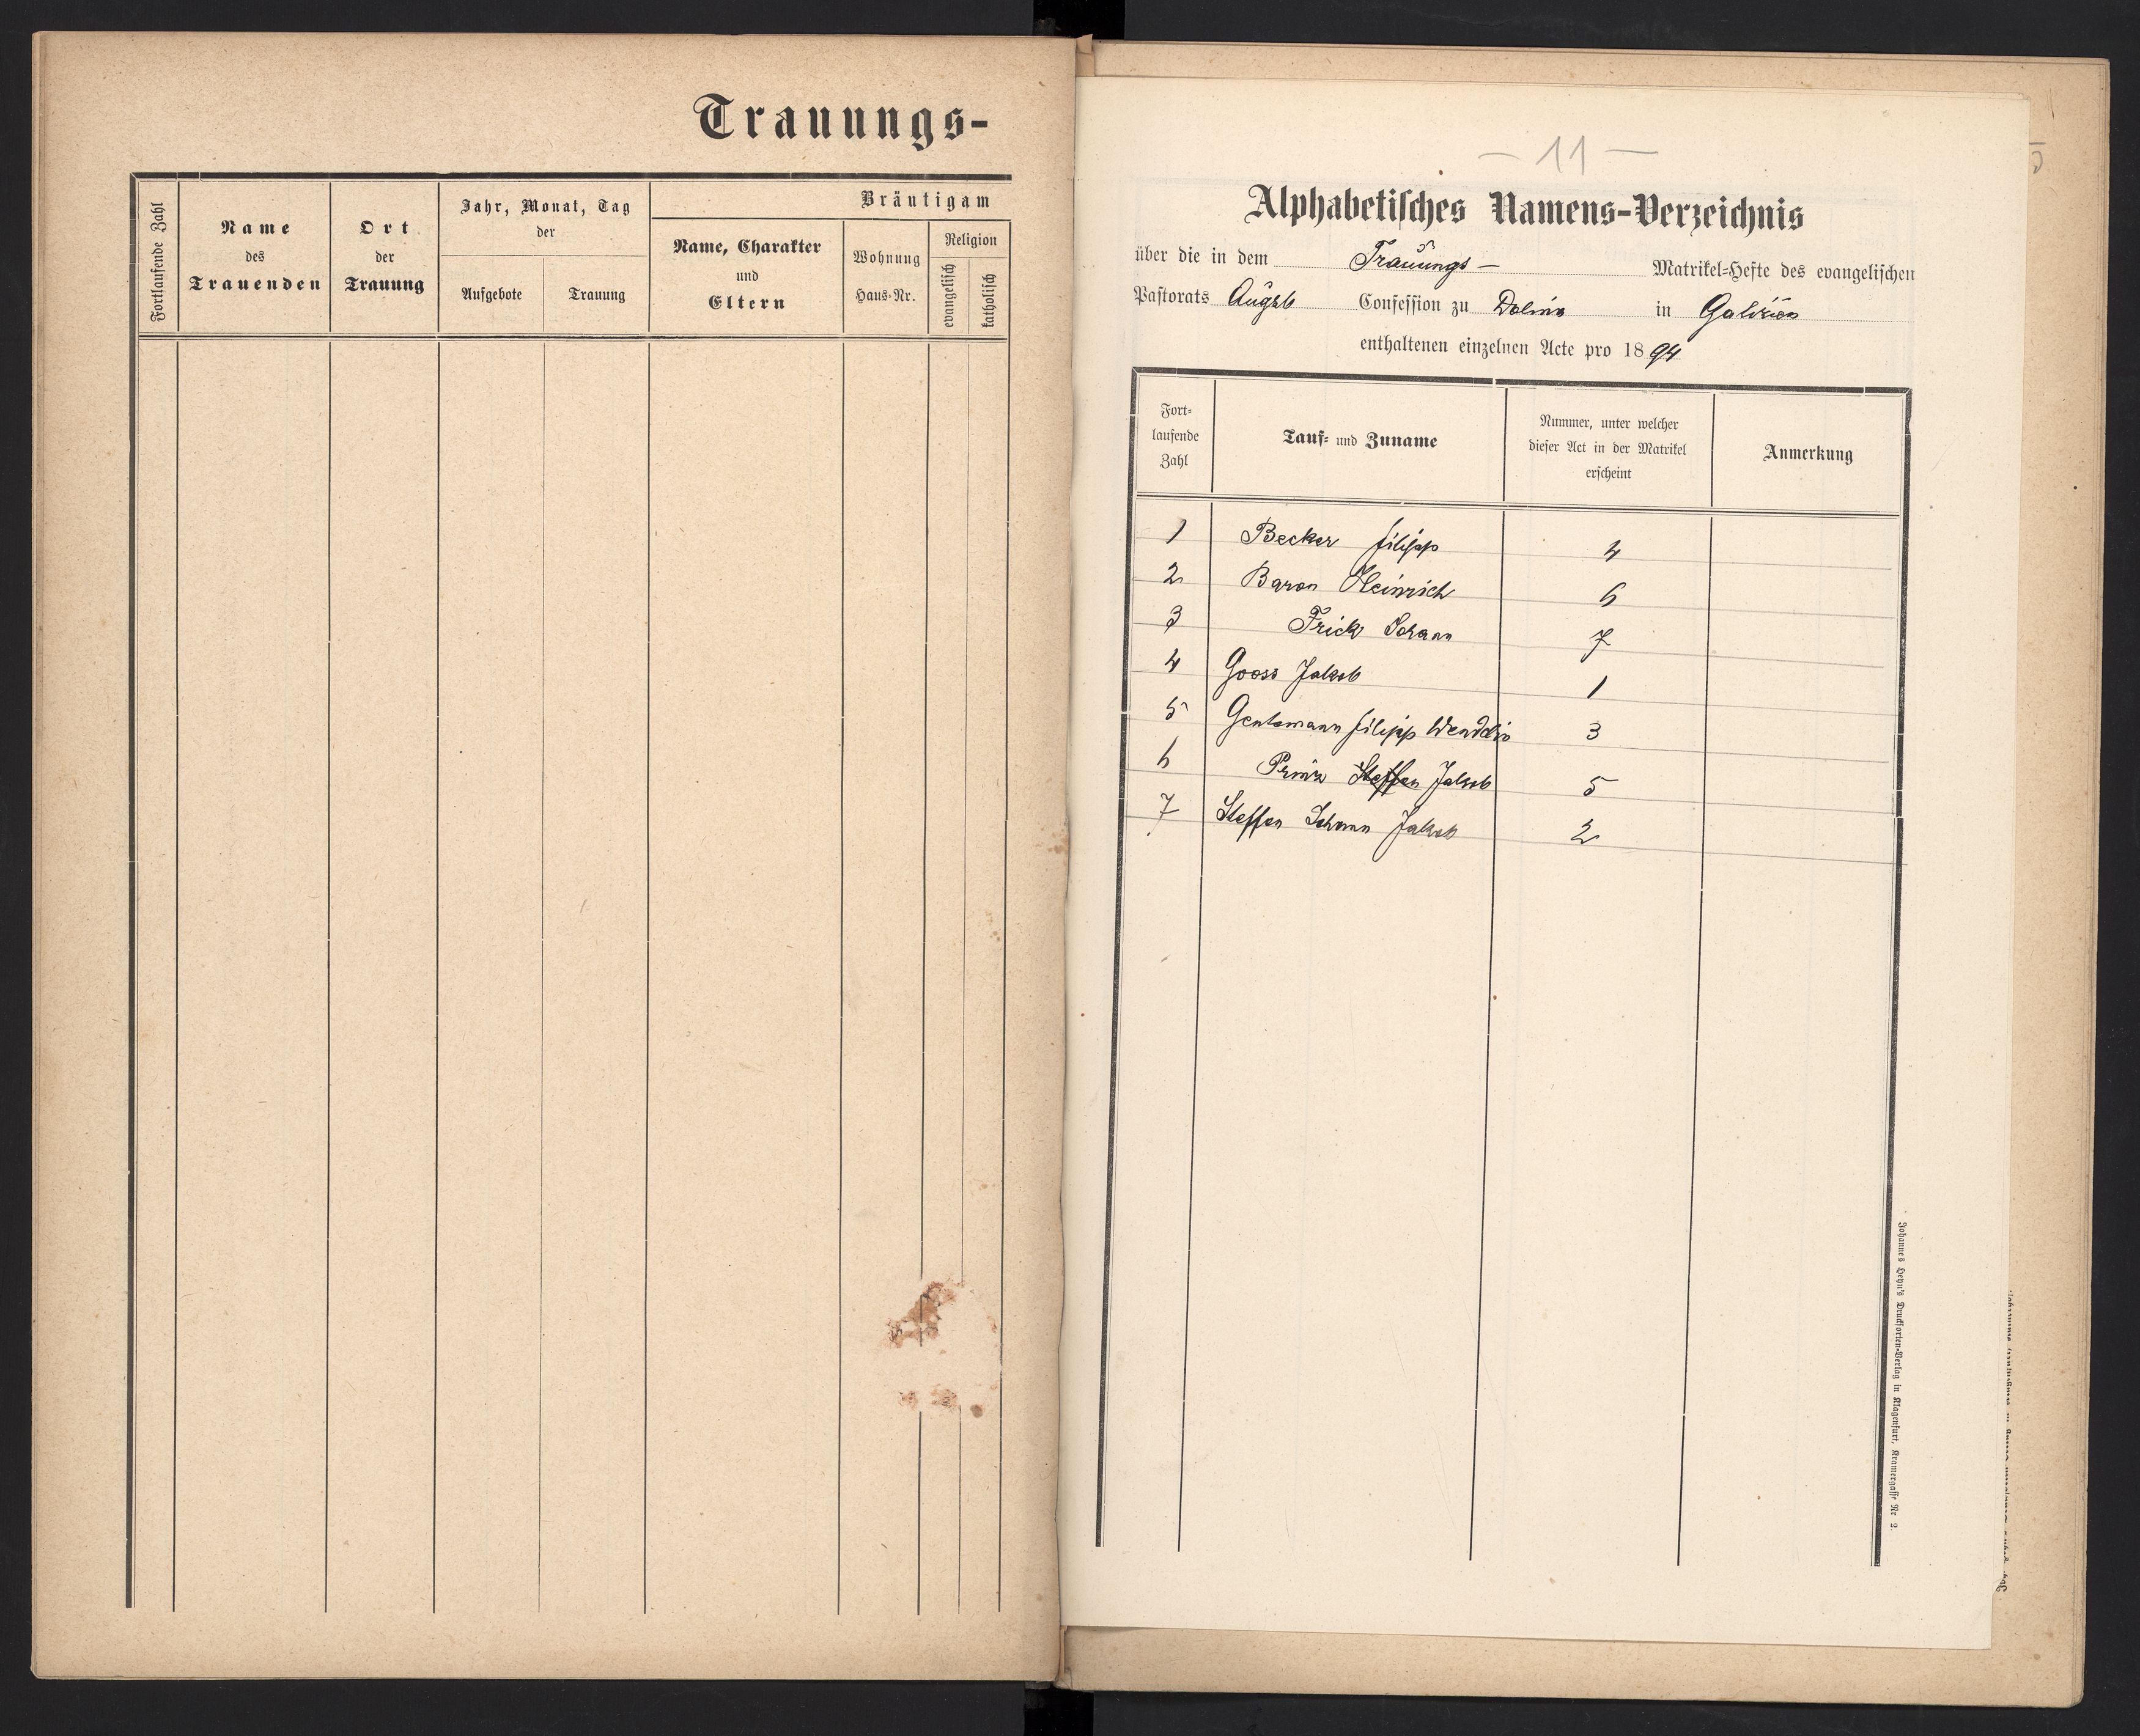 Trauungs-
Fortlaufende Zahl
Name
des
Trauenden
Ort
der
Trauung
Jahr, Monat, Tag
der
Aufgebote
Trauung
Bräutigam
Name, Charakter
und
Eltern
Wohnung
Haus-Nr.
Religion
evangelisch
katholisch
— 11 —
Alphabetisches Namens-Verzeichnis
über die in dem Trauungs- Matrikel-Hefte des evangelischen
Pastorats Augsb Confession zu Dolina in Galizien
enthaltenen einzelnen Acte pro 1894
Fort-
laufende
Zahl
Tauf- und Zuname
Nummer, unter welcher
dieser Act in der Matrikel
erscheint
Anmerkung
1 Becker Filipp 4
2 Baron Heinrich 6
3 Frick Johann 7
4 Gooss Jakob 1
5 Gentzmann Filipp Wendelin 3
6 Prinz Steffen Jakob 5
7 Steffen Johann Jakob 2
Johannes Heyn's Drucksorten-Verlag in Klagenfurt, Kramergasse Nr 2.